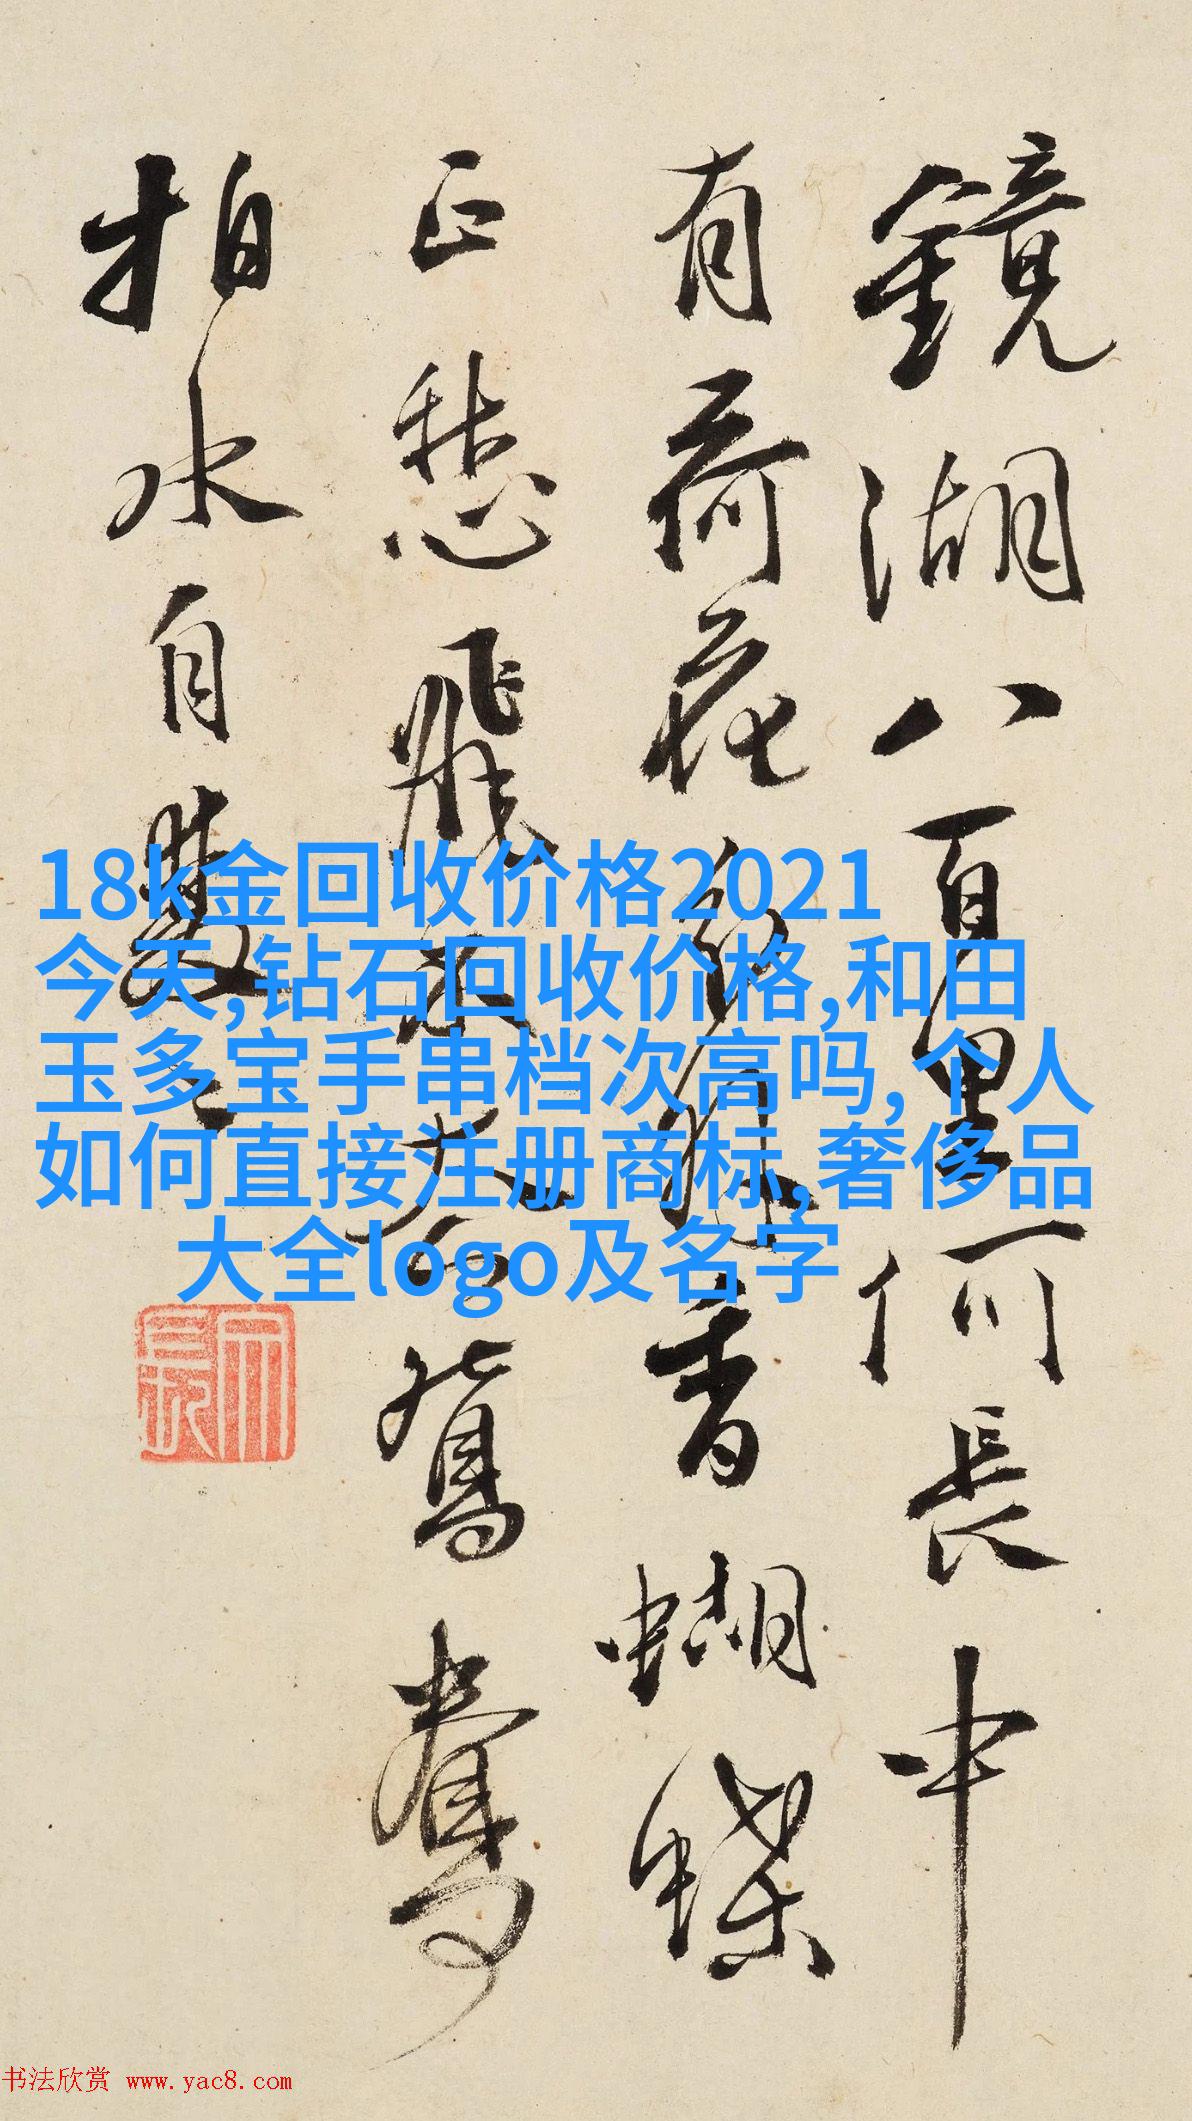 鏡湖八百里何長中
有荷花分外香蝴蝶
正愁飛不過鴛鴦
拍水自雙〻
18k金回收价格2021
今天,钻石回收价格,和田
玉多宝手串档次高吗,个人
如何直接注册商标,奢侈品
大全logo及名字
书法欣赏 www.yac8.com